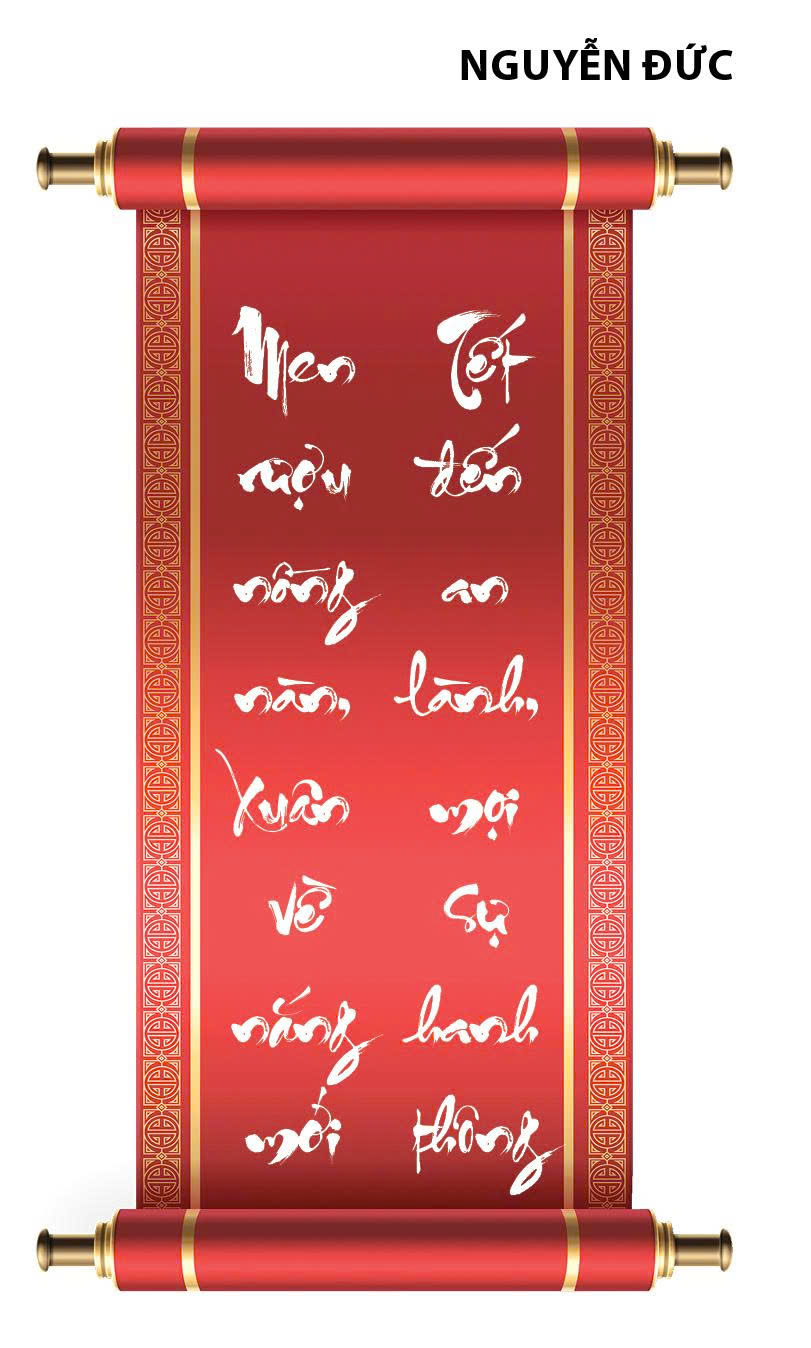 NGUYỄN ĐỨC
Men rượu nồng nàn, Xuân về nắng mới
Tết đến an lành, mọi sự hanh thông